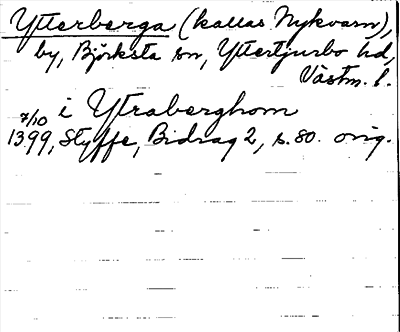 Ytterberga (kallas Nykvarn),
by, Björksta sn, Yttertjurbo hd,
Västm. l.
i Ytraberghom
7/10
1399, Styffe, Bidrag 2, s. 80. orig.